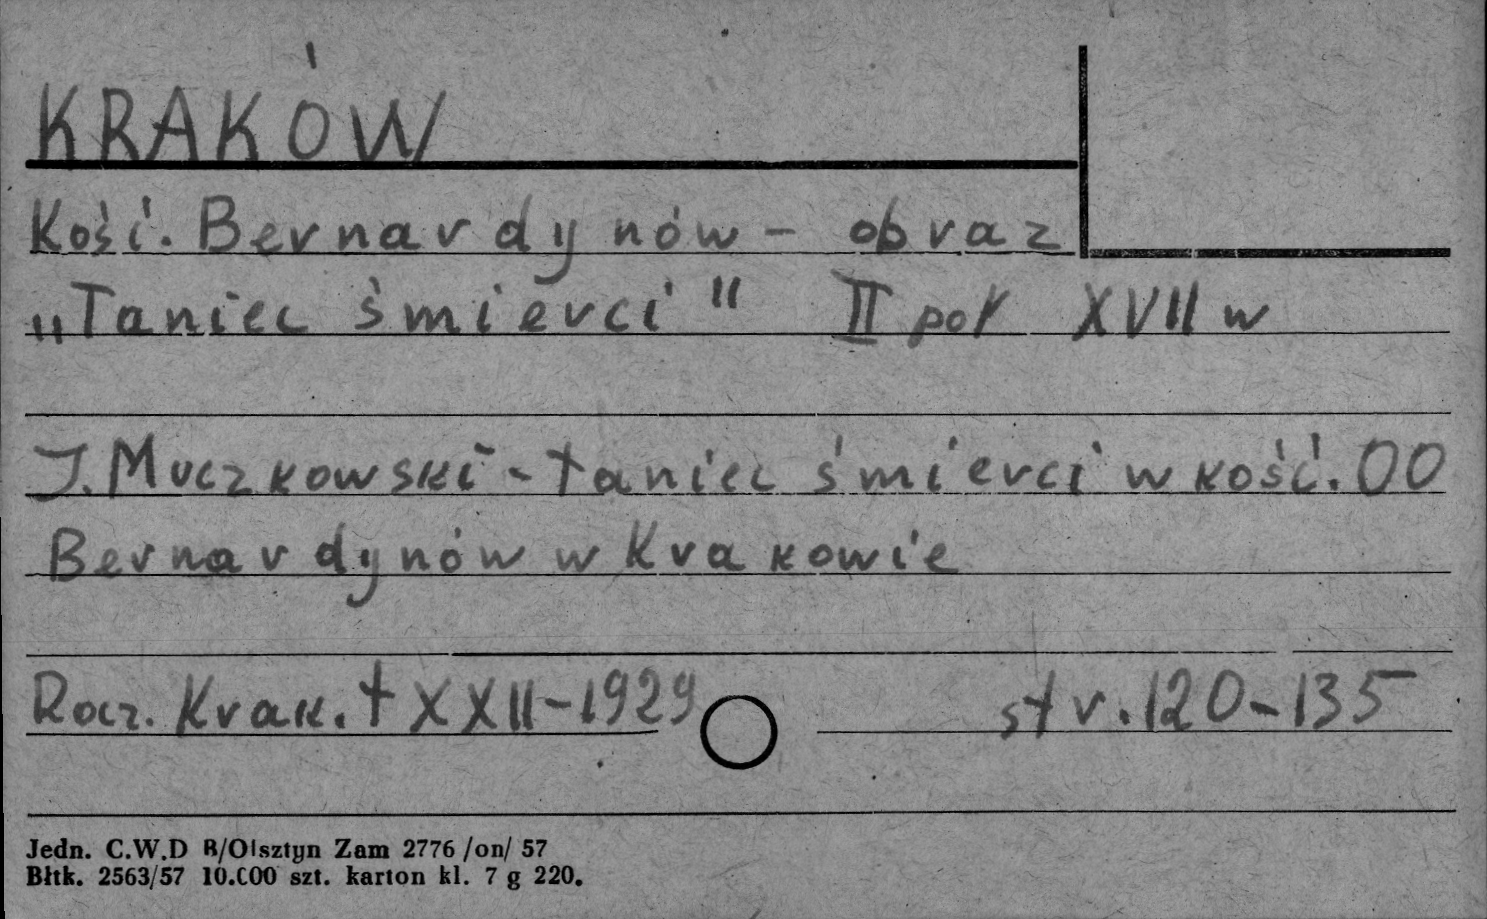 KRAKÓW
Kość. Bernardynów - obraz
„Taniec śmierci" II poł XVII w
J. Muczkowski - taniec śmierci w kość. OO
Bernardynów w Krakowie
Rocz. Krak. t XXII - 1929 str. 120-135
Jedn. C.W.D R/Olsztyn Zam 2776 /on/ 57
Błtk. 2563/57 10.000 szt. karton kl. 7 g 220.